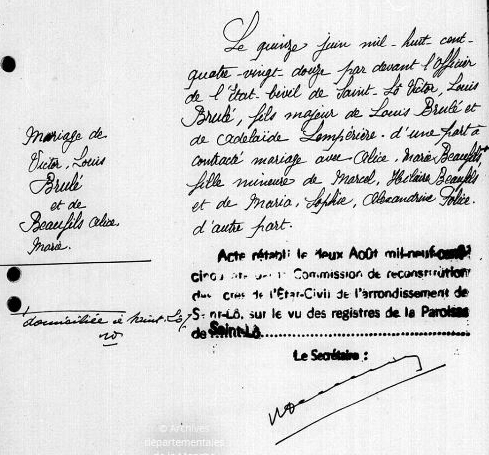 Le quinze juin mil-huit-cent-
quatre-vingt-douze par devant l'Officier
de l'Etat-Civil de Saint-Lô Victor, Louis
Brulé, fils majeur de Louis Brulé et
de Adelaïde Lempérière. d'une part a
contracté mariage avec Alice, Marie Beaufils,
fille mineure de Marcel, Hilaire Beaufils
et de Maria, Sophie, Alexandrine
d'autre part.
Mariage de
Victor, Louis
Brulé
et de
Beaufils Alice,
Marie.
domiciliée à Saint-Lô
Acte rétabli le deux Août mil-neuf-cent
Commission de reconstitution
des actes de l'État-Civil de l'arrondissement de
Saint-Lô, sur le vu des registres de la Paroisse
de Saint-Lô
Le Secrétaire :
© Archives
départementales
de la Manche